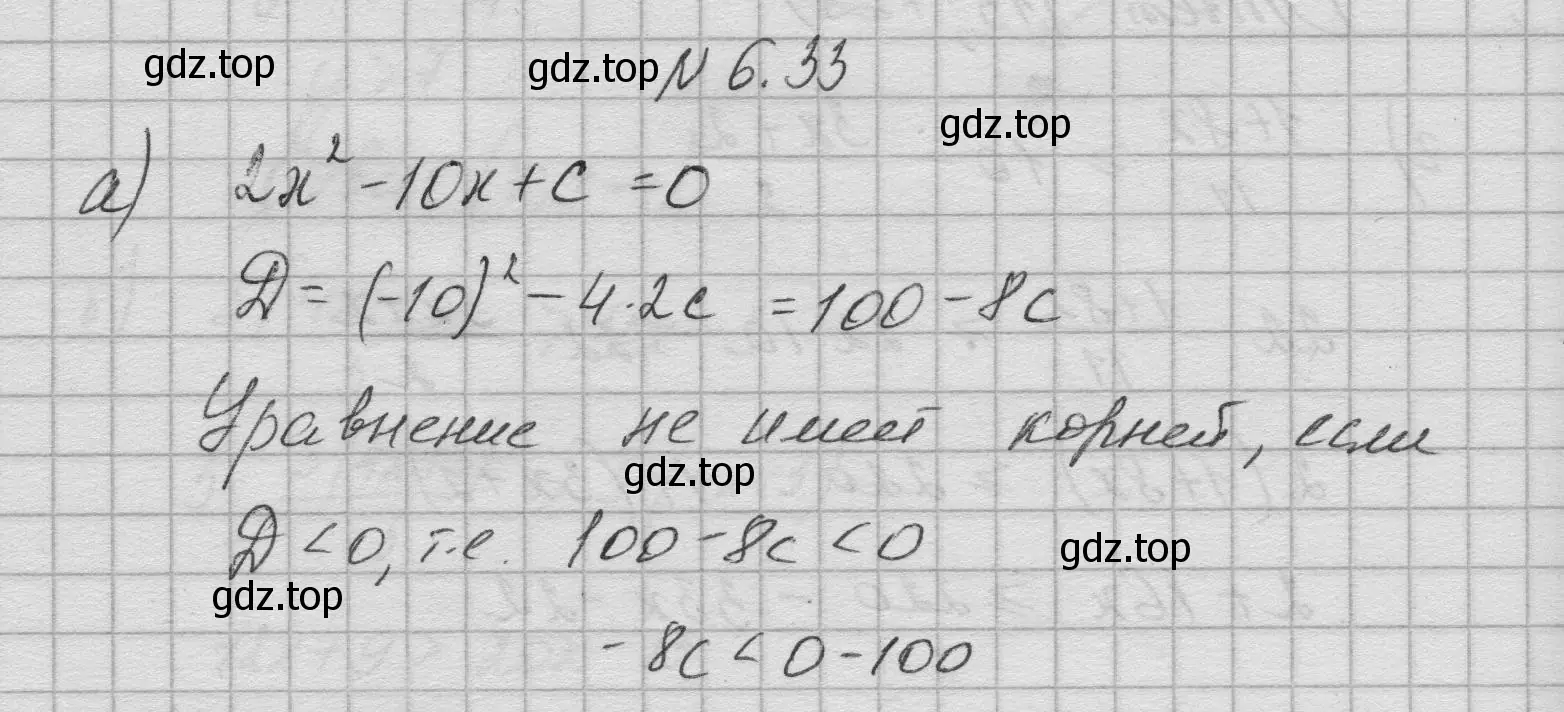 gdz.top gdz.top № 6.33
gdz.top
а) 2x² - 10x + c = 0
D = (-10)² - 4·2c = 100 - 8c
Уравнение не имеет корней, если
gdz.top
D < 0, т.е. 100 - 8c < 0
gdz.top
gdz.top
- 8c < 0 - 100